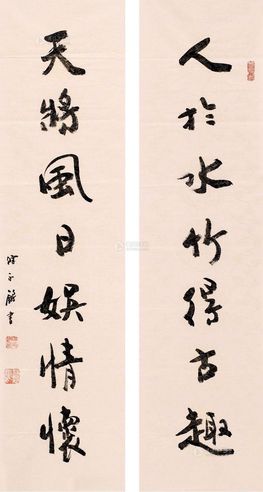 人於水竹得古趣
天將風日娱情懷